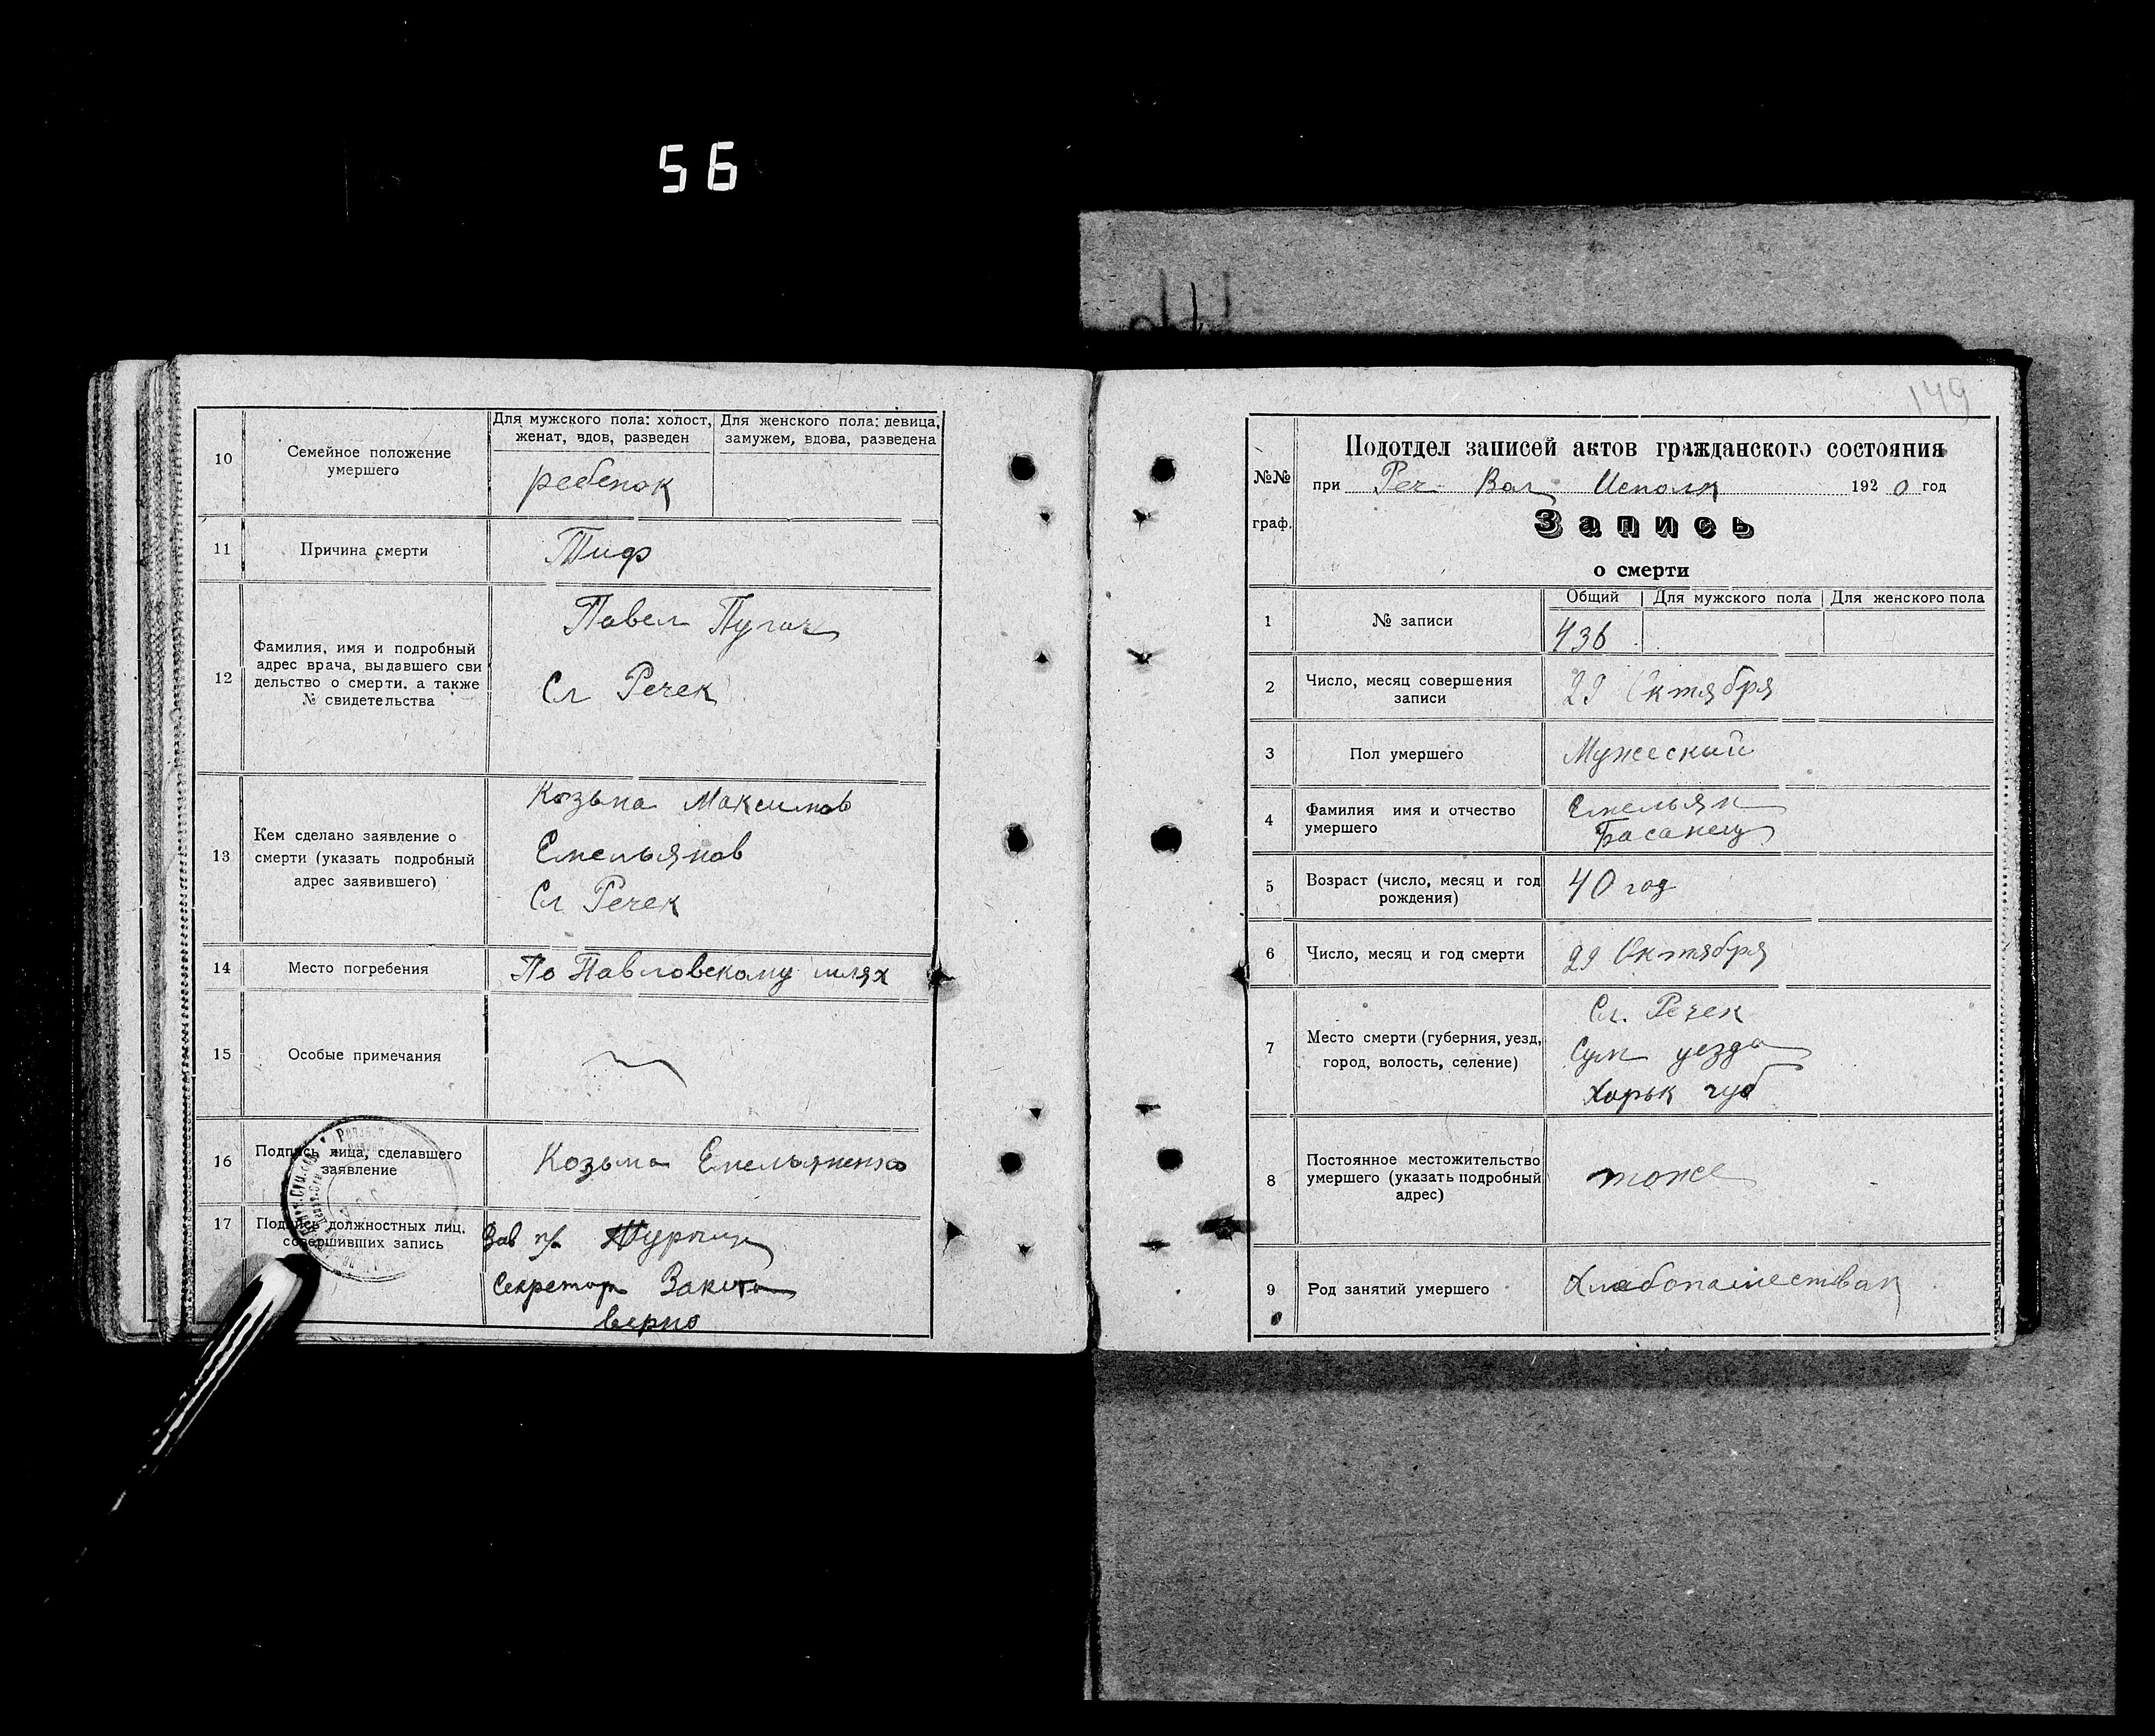 56
10
Семейное положение
умершего
Для мужского пола: холост,
женат, вдов, разведен
Для женского пола: девица,
замужем, вдова, разведена
ребенок
11
Причина смерти
Тиф
12
Фамилия, имя и подробный
адрес врача, выдавшего сви
дельство о смерти, а также
№ свидетельства
Павел Пугач
Сл Речек
13
Кем сделано заявление о
смерти (указать подробный
адрес заявившего)
Козьма Максимов
Емельянов
Сл Речек
14
Место погребения
По Павловскому шлях
15
Особые примечания
16
Подпись лица, сделавшего
заявление
Козьма Емельяненко
17
Подпись должностных лиц,
совершивших запись
Зав п/о
Секретар
верно
149
№№
граф.
Подотдел записей актов гражданского состояния
при Реч- Вол Исполк 1920 год
Запись
о смерти
1
№ записи
Общий
Для мужского пола
Для женского пола
436
2
Число, месяц совершения
записи
29 Октября
3
Пол умершего
Мужеский
4
Фамилия имя и отчество
умершего
Емельян
Басанец
5
Возраст (число, месяц и год
рождения)
40 год
6
Число, месяц и год смерти
29 Октября
7
Место смерти (губерния, уезд,
город, волость, селение)
Сл. Речек
Сум уезда
Харьк губ
8
Постоянное местожительство
умершего (указать подробный
адрес)
тоже
9
Род занятий умершего